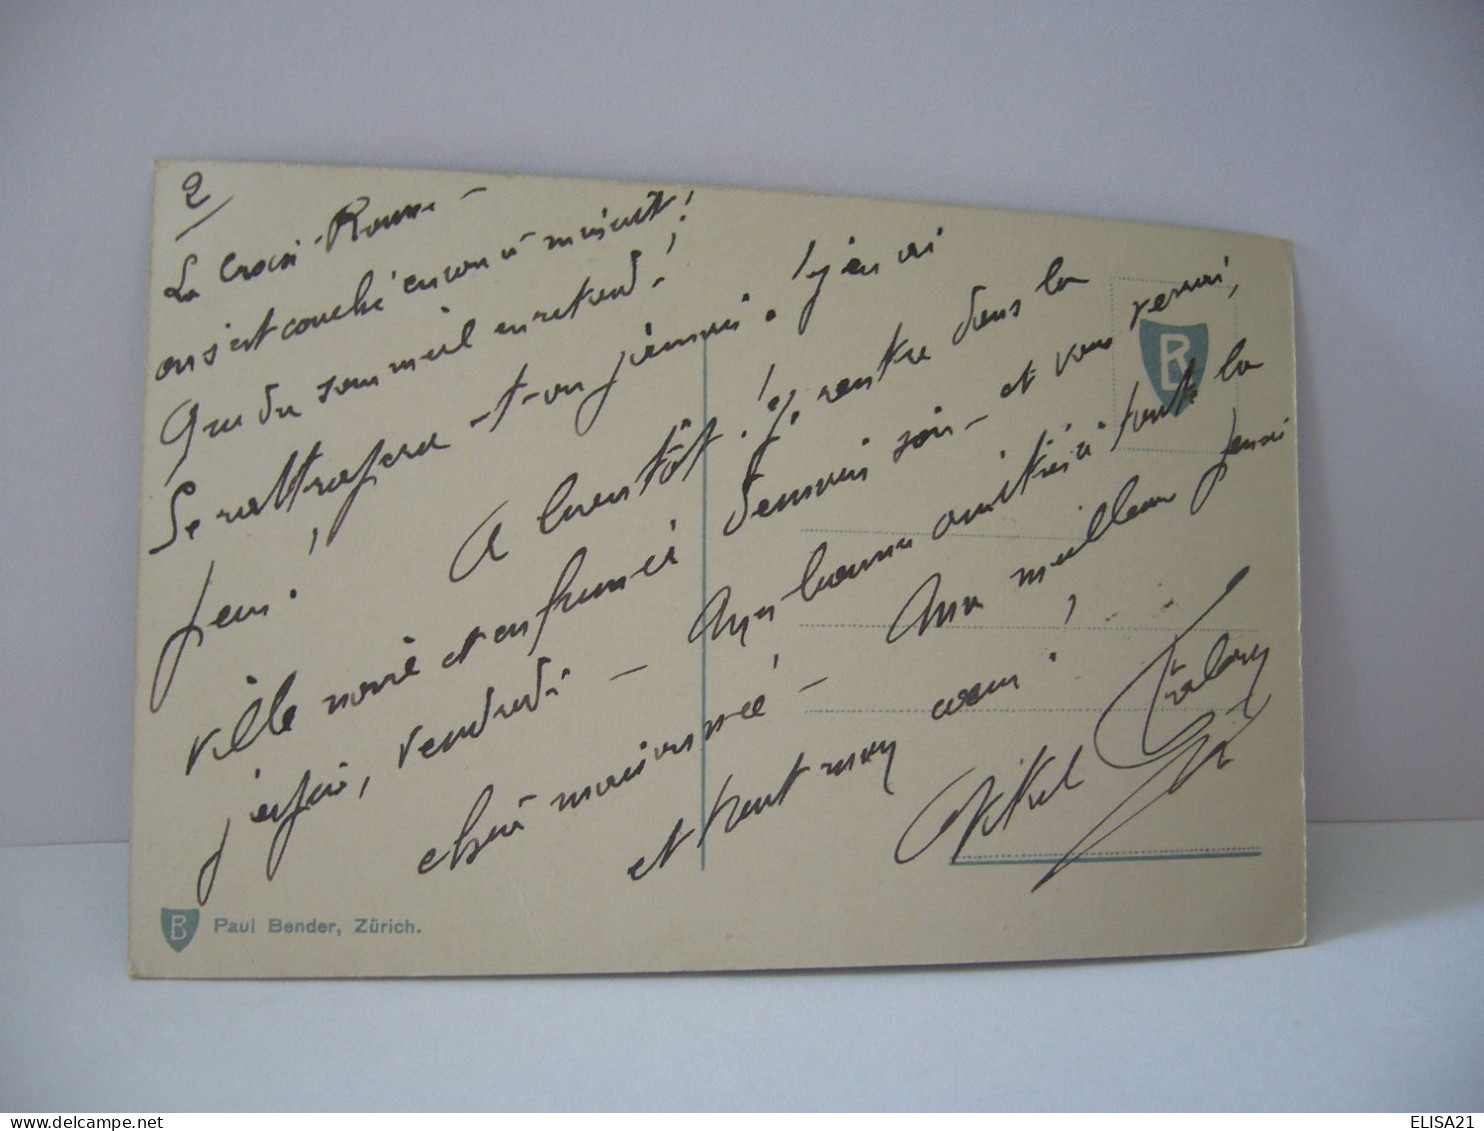 2
La Croix-Rousse —
on s'est couché encore à minuit !
Que du sommeil en retard !
Se rattrapera-t-on jamais. ! j'en ai
peur !
A bientôt ! Je rentre dans la
ville noire et enfumée demain soir — et vous verrai,
j'espère, vendredi — bonne amitié à toute la
chère maisonnée — meilleur
et tout mon cœur !
B
Paul Bender, Zürich.
ELISA21